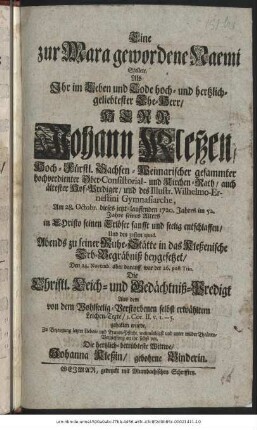 Eine
zur Mara gewordene Naemi
Stellete
Als
Ihr im Leben und Tode hoch- und hertzlich-
geliebtester Ehe-Herr/
HERR
Johann Kleßen/
Hoch-Fürstl. Sachsen-Weimarischer gesammter
hochverdienter Ober-Consistorial- und Kirchen-Rath/ auch
ältester Hof-Prediger/ und des Illustr. Wilhelmo-Er-
nestini Gymnasiarche,
Am 28. Octobr. dieses jetzt-lauffenden 1720. Jahres im 52.
Jahre seines Alters
in Christo seinen Erlöser sanfft und seelig entschlaffen/
Und den
Abends zu seiner Ruhe-Stätte in das Kleßenische
Erb-Begräbniß beygesetzet/
Den 24. Novemb. aber darauff war der 26. post Trin.
Die
Christl. Leich- und Gedächtniß-Predigt
Aus dem
von dem Wohlseelig-Verstorbenen selbst erwählten
Leichen-Texte/ 1. Cor. II. v. 1. -
gehalten wurde,
Die hertzlich-betrübteste Witwe/
Johanna Kleßin/ gebohrne Binderin.
WEIMAR, gedruckt mit Mumbachischen Schrifften.